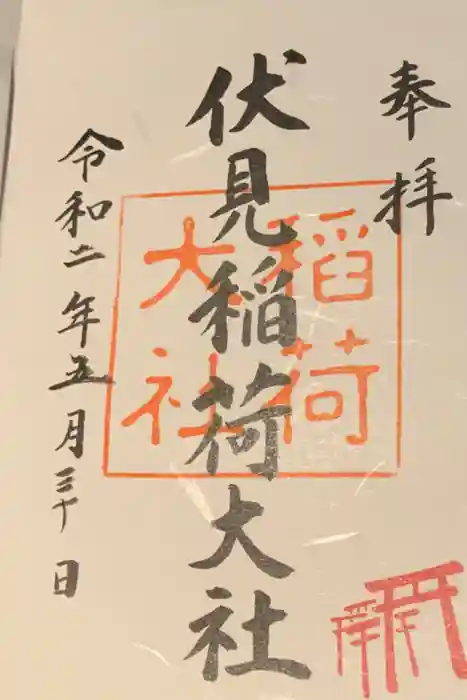 奉拝
伏見稲荷大社
稲荷
大社
令和二年五月三十日